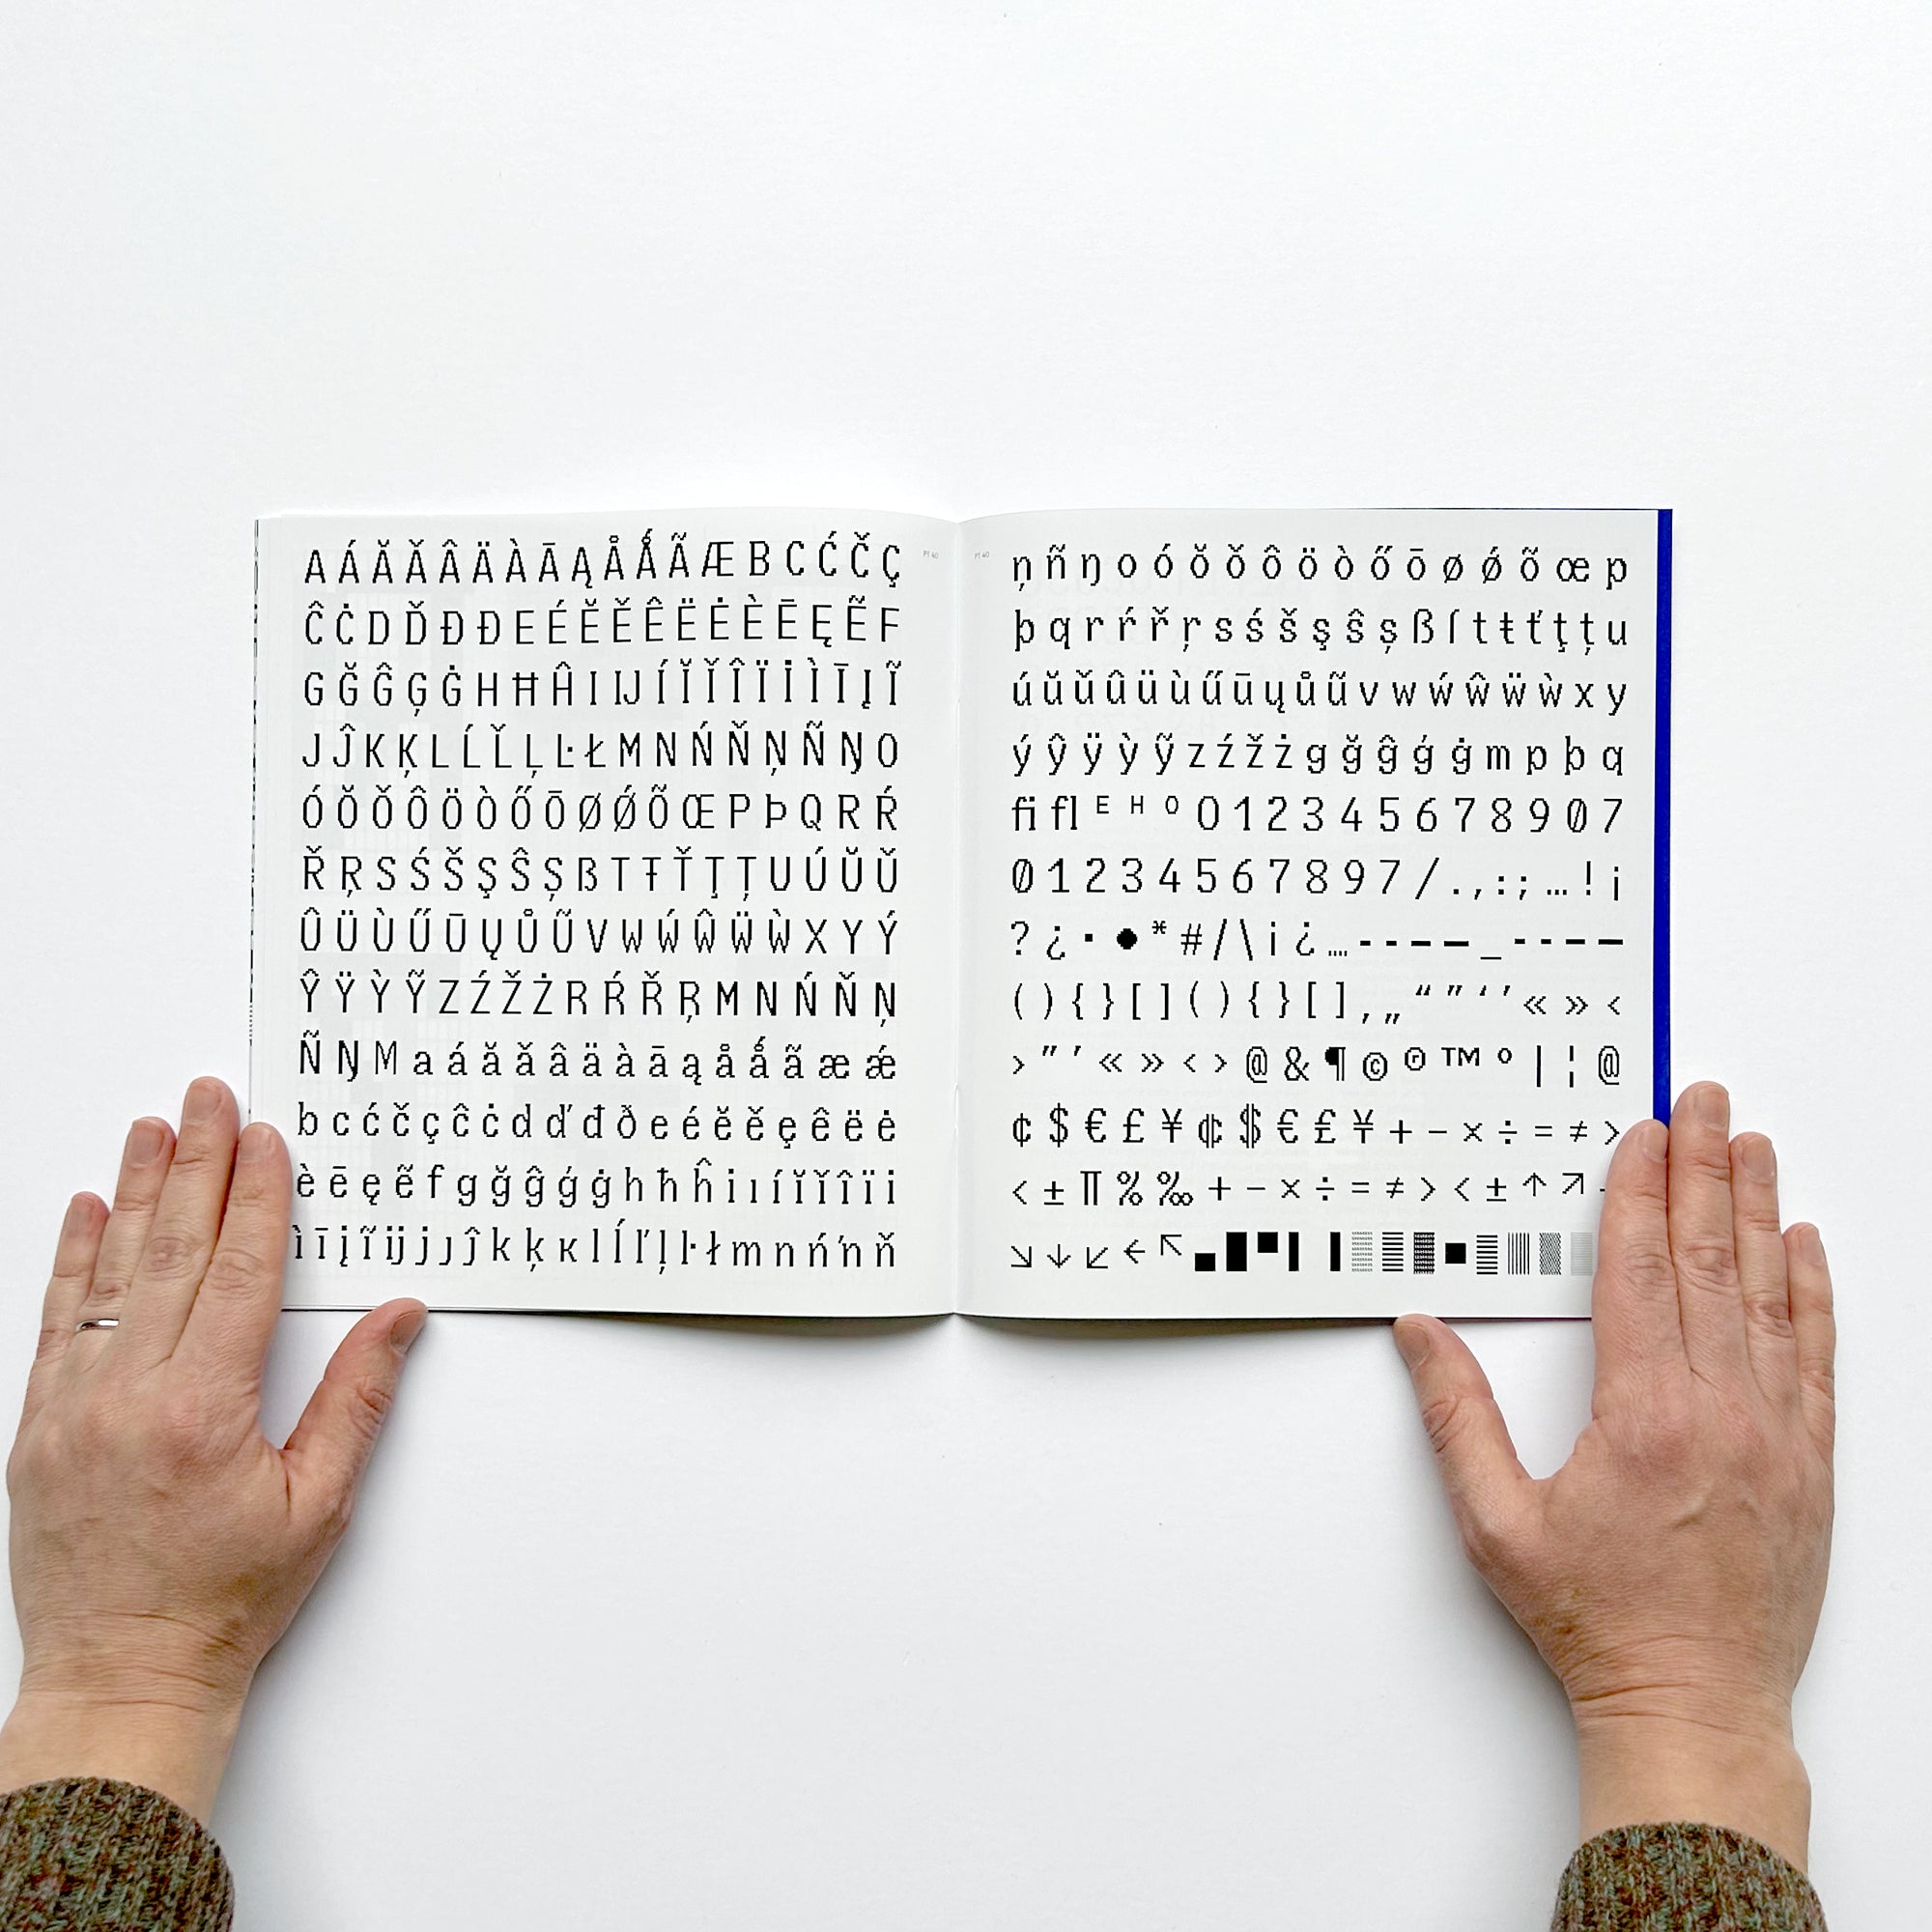 A Á Ă Ǎ Â Ä À Ā Ą Å Ǻ Ã Æ B C Ć Č Ç
Ĉ Ċ D Ď Đ Ð E É Ĕ Ě Ê Ë Ė È Ē Ę Ẽ F
G Ğ Ĝ Ģ Ġ H Ħ Ĥ I IJ Í Ĭ Ǐ Î Ï İ Ì Ī Į Ĩ
J Ĵ K Ķ L Ĺ Ľ Ļ Ŀ Ł M N Ń Ň Ņ Ñ Ŋ O
Ó Ŏ Ǒ Ô Ö Ò Ő Ō Ø Ǿ Õ Œ P Þ Q R Ŕ
Ř Ŗ S Ś Š Ş Ŝ Ș ẞ T Ŧ Ť Ţ Ț U Ú Ŭ Ǔ
Û Ü Ù Ű Ū Ų Ů Ũ V W Ẃ Ŵ Ẅ Ẁ X Y Ý
Ŷ Ÿ Ỳ Ỹ Z Ź Ž Ż R Ŕ Ř Ŗ M N Ń Ň Ņ
Ñ Ŋ M a á ă ǎ â ä à ā ą å ǻ ã æ ǽ
b c ć č ç ĉ ċ d ď đ ð e é ĕ ě ę ê ë ė
è ē ę ẽ f g ğ ĝ ģ ġ h ħ ĥ i ı í ĭ ǐ î ï i
ì ī į ĩ ij j ȷ ĵ k ķ ĸ l ĺ ľ ļ ŀ ł m n ń ŉ ň
PT 40
PT 40
ņ ñ ŋ o ó ŏ ǒ ô ö ò ő ō ø ǿ õ œ p
þ q r ŕ ř ŗ s ś š ş ŝ ș ß ſ t ŧ ť ţ ț u
ú ŭ ǔ û ü ù ű ū ų ů ũ v w ẃ ŵ ẅ ẁ x y
ý ŷ ÿ ỳ ỹ z ź ž ż g ğ ĝ ģ ġ m p þ q
fi fl ᴱ ᴴ ᴼ 0 1 2 3 4 5 6 7 8 9 0 7
0 1 2 3 4 5 6 7 8 9 7 / . , : ; … ! ¡
? ¿ · ● * # / \ ¡ ¿ … - - – — _ - - – —
( ) { } [ ] ( ) { } [ ] ‚ „ “ ” ‘ ’ « » ‹
› " ' « » ‹ › @ & ¶ © ® ™ º | ¦ @
¢ $ € £ ¥ ¢ $ € £ ¥ + − × ÷ = ≠ >
< ± ∏ % ‰ + − × ÷ = ≠ > < ± ↑ ↗
↘ ↓ ↙ ← ↖